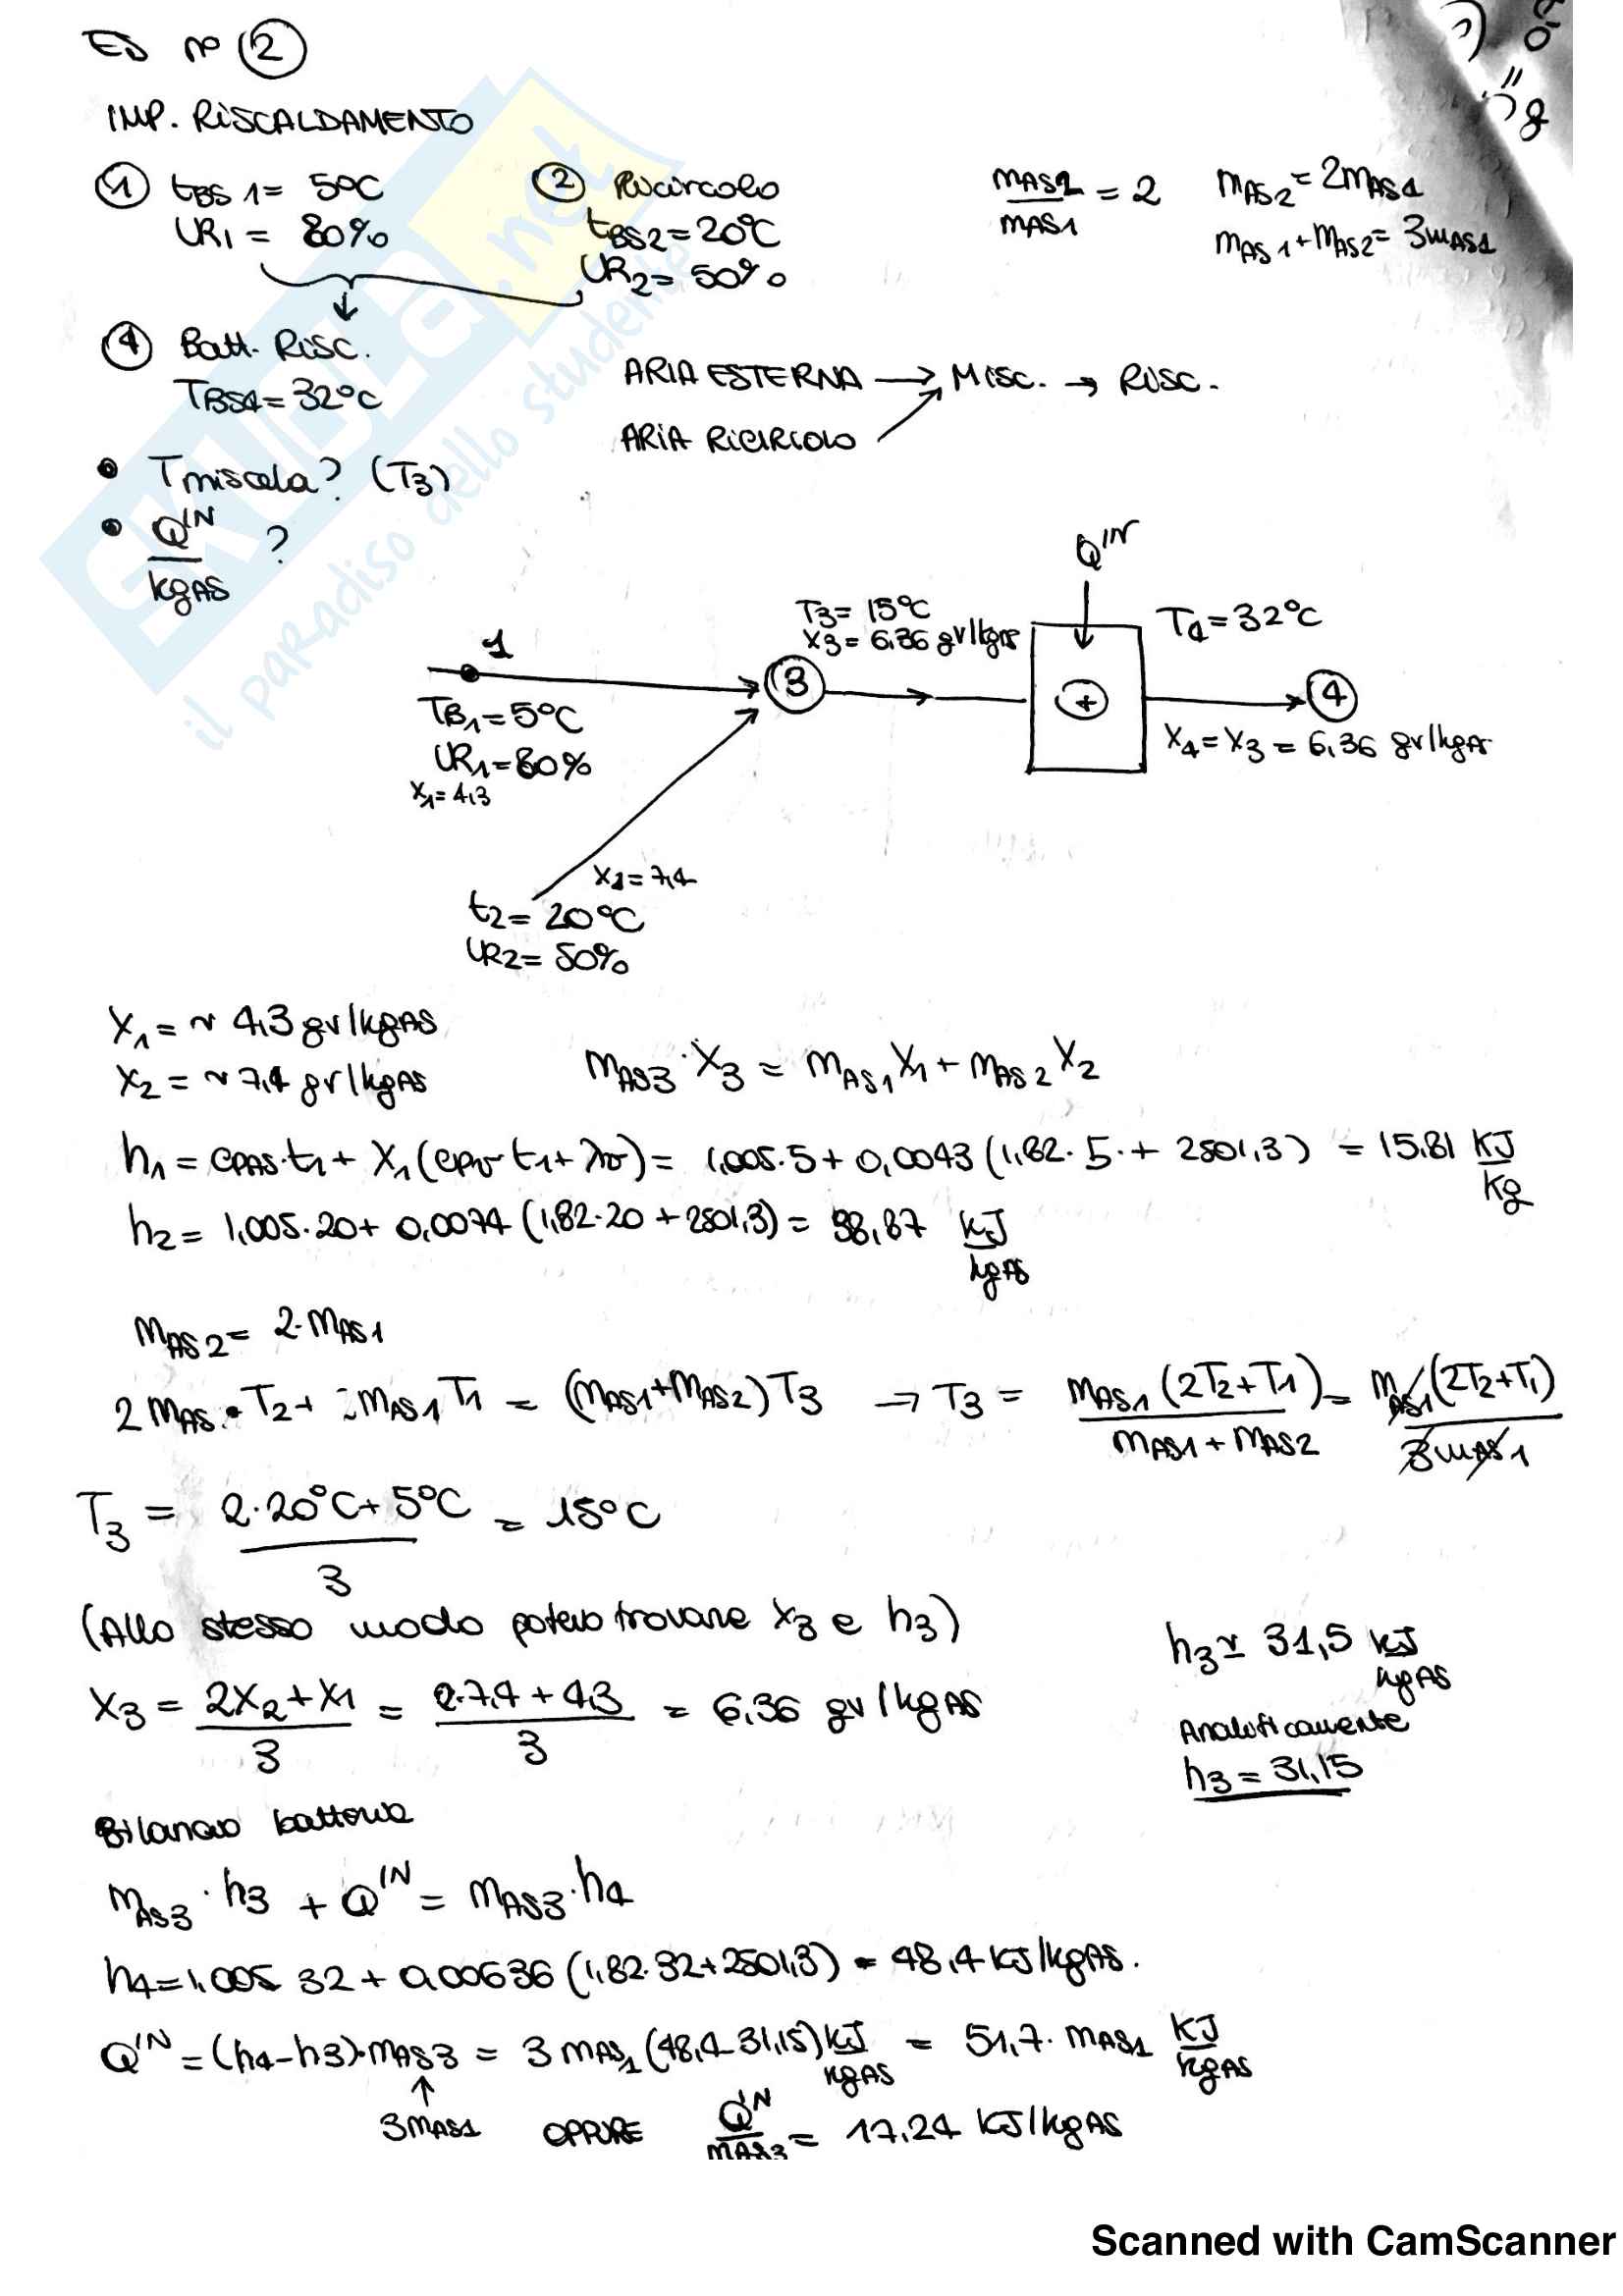 ES n° 2
IMP. RISCALDAMENTO
1 tBS 1 = 5°C
UR1 = 80%
2 Ricircolo
tBS2 = 20°C
UR2 = 50%
mAS2/mAS1 = 2
mAS2 = 2mAS1
mAS1 + mAS2 = 3mAS1
4 Batt. Risc.
TBS4 = 32°C
ARIA ESTERNA → MISC. → RISC.
ARIA RICIRCOLO
• Tmiscela? (T3)
• Q^IN/kgAS ?
Q^IN
T3 = 15°C
X3 = 6,36 gv/kgas
T4 = 32°C
1
3
+
4
TB1 = 5°C
UR1 = 80%
X1 = 4,3
X4 = X3 = 6,36 gv/kgas
X2 = 7,4
t2 = 20°C
UR2 = 50%
X1 = ~ 4,3 gv/kgAS
X2 = ~ 7,4 gv/kgAS
mAS3 · X3 = mAS1 X1 + mAS2 X2
h1 = cpAS · t1 + X1 (cpv t1 + λv) = 1,005·5 + 0,0043 (1,82·5 + 2501,3) = 15,81 KJ/Kg
h2 = 1,005·20 + 0,0074 (1,82·20 + 2501,3) = 38,87 KJ/kgAS
mAS2 = 2·mAS1
2 mAS · T2 + mAS1 T1 = (mAS1 + mAS2) T3 → T3 = mAS1 (2T2 + T1)/mAS1 + mAS2 = mAS1 (2T2 + T1)/3mAS1
T3 = 2·20°C + 5°C/3 = 15°C
(Allo stesso modo potevo trovare X3 e h3)
h3 ≃ 31,5 KJ/kgAS
X3 = 2X2 + X1/3 = 2·7,4 + 4,3/3 = 6,36 gv/kgAS
Analiticamente
h3 = 31,15
Bilancio batteria
mAS3 · h3 + Q^IN = mAS3 · h4
h4 = 1,005 32 + 0,00636 (1,82·32 + 2501,3) = 48,4 KJ/kgAS.
Q^IN = (h4 - h3) · mAS3 = 3 mAS1 (48,4 - 31,15) KJ/kgAS = 51,7 · mAS1 KJ/kgAS
3mAS1 OPPURE Q^IN/mAS3 = 17,24 KJ/kgAS
SKUOLa.net
il paradiso dello studente
Scanned with CamScanner